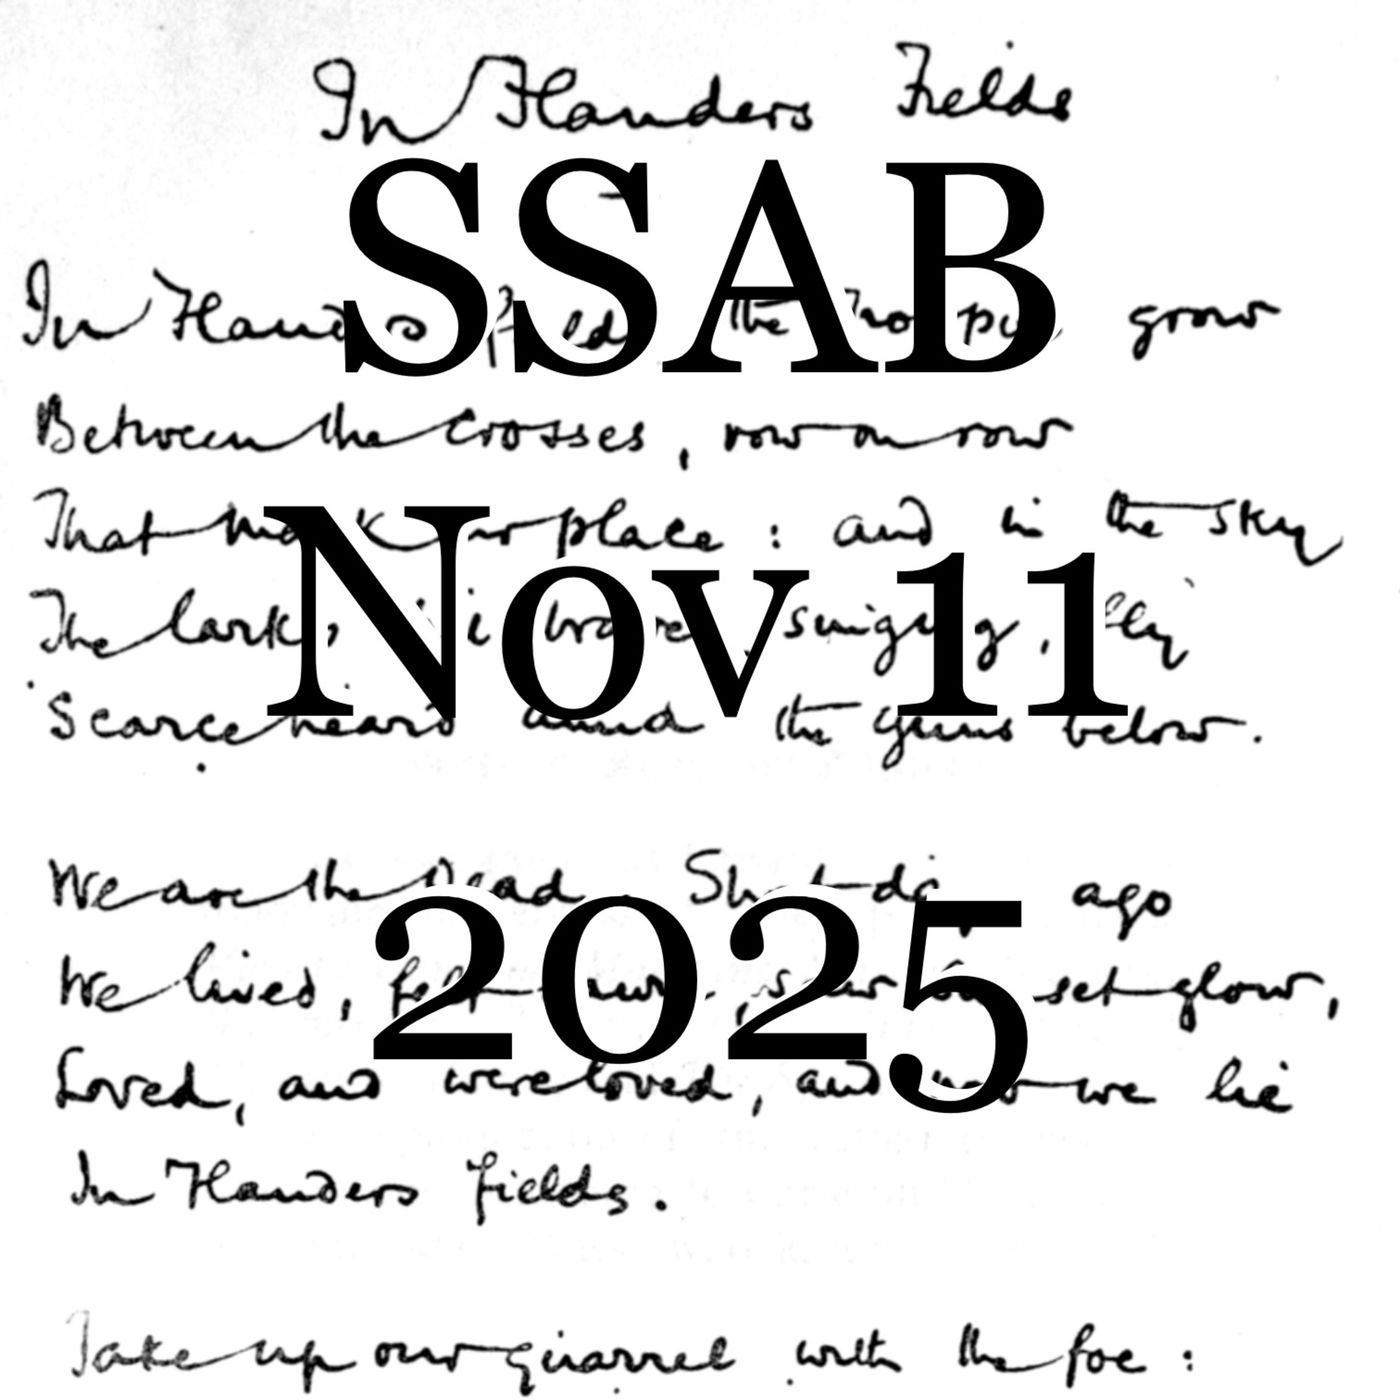 In Flanders Fields
SSAB
In Flanders fields the grow
Between the crosses, row on row
That mark our place : and in the sky
Nov 11
The larks, singing, fly
Scarce heard amid the guns below.
We are the Dead. ago
2025
We lived, felt saw set glow,
Loved, and were loved, and now we lie
In Flanders fields.
Take up our quarrel with the foe :